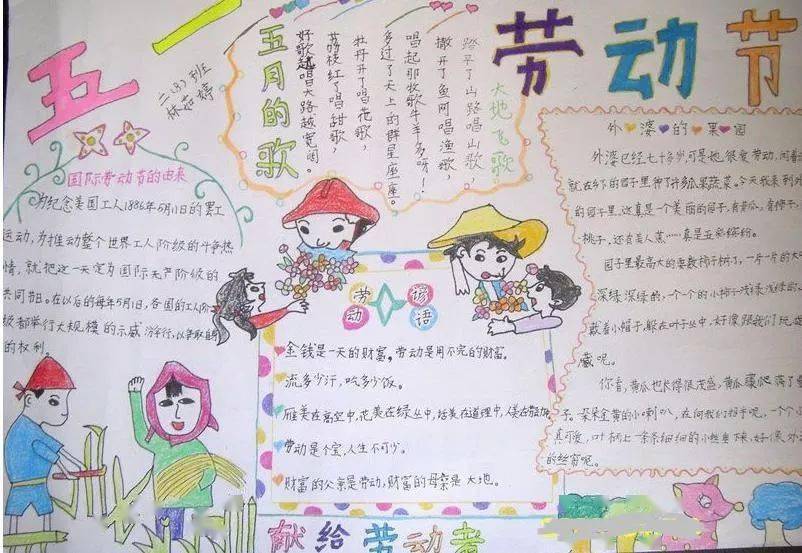 五一
劳动节
林茹婷
五月的歌
大地飞歌
踏平了山路唱山歌,
撒开了鱼网唱渔歌,
唱起那牧歌牛羊多呀!
多过了天上的群星座座。
牡丹开了唱花歌,
荔枝红了唱甜歌,
好歌越唱大路越宽阔。
国际劳动节的由来
为纪念美国工人1886年5月1日的罢工
运动,为推动整个世界工人阶级的斗争热
情,就把这一天定为国际无产阶级的
共同节日。在以后的每年5月1日,各国的工人阶
级都举行大规模的示威游行,以争取自
的权利。
劳动谚语
金钱是一天的财富。劳动是用不完的财富。
流多少汗,吃多少饭。
雁美在高空中,花美在绿丛中,话美在道理中,人美在
劳动是个宝,人生不可少。
财富的父亲是劳动,财富的母亲是大地。
外婆的果园
外婆已经七十多岁,可是她很爱劳动,闲着
就在的园子里种了许多瓜果蔬菜。今天我来到外
的园子里,这真是一个美丽的园子,有黄瓜,有柿子
桃子,还有美人蕉……真是五彩缤纷。
园子里最高大的要数柿子树了,一片一片的大叶
深绿深绿的,一个一个的小柿子浅绿浅绿的
戴着小帽子,躲在叶子丛中,好像跟我们玩
藏呢。
你看,黄瓜也长得很茂盛,黄瓜藤爬满了
子。朵朵金黄的小喇叭,在向我们招手呢,一个个
真可爱,叶柄上一条条细细的小丝垂下来,好像外
的丝窗呢。
献给劳动者